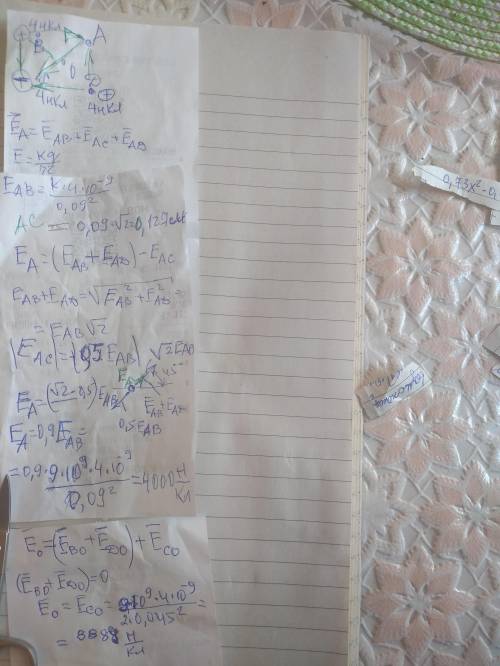 4нКл
B
A
O
D
4нКл
4нКл
E̅_A = E̅_AB + E̅_AC + E̅_AD
E = kq/r²
E_AB = k·4·10⁻⁹/0,09²
AC = 0,09·√2 = 0,127
E_A = (E_AB + E_AD) − E_AC
E_AB + E_AD = √(E_AB² + E_AD²) =
= E_AB√2
|E_AC| = |0,5E_AB|
√2E_AD
45
E_A = (√2 − 0,5)E_AB
E_AB + E_AD
0,5E_AB
E_A = 0,9E_AB =
= 0,9·9·10⁹·4·10⁻⁹/0,09² = 4000 Н/Кл
E̅_O = (E̅_BO + E̅_DO) + E̅_CO
(E̅_BO + E̅_DO) = 0
E̅_O = E̅_CO = 9·10⁹·4·10⁻⁹/2·0,045² =
= 8888 Н/Кл
0,73x²